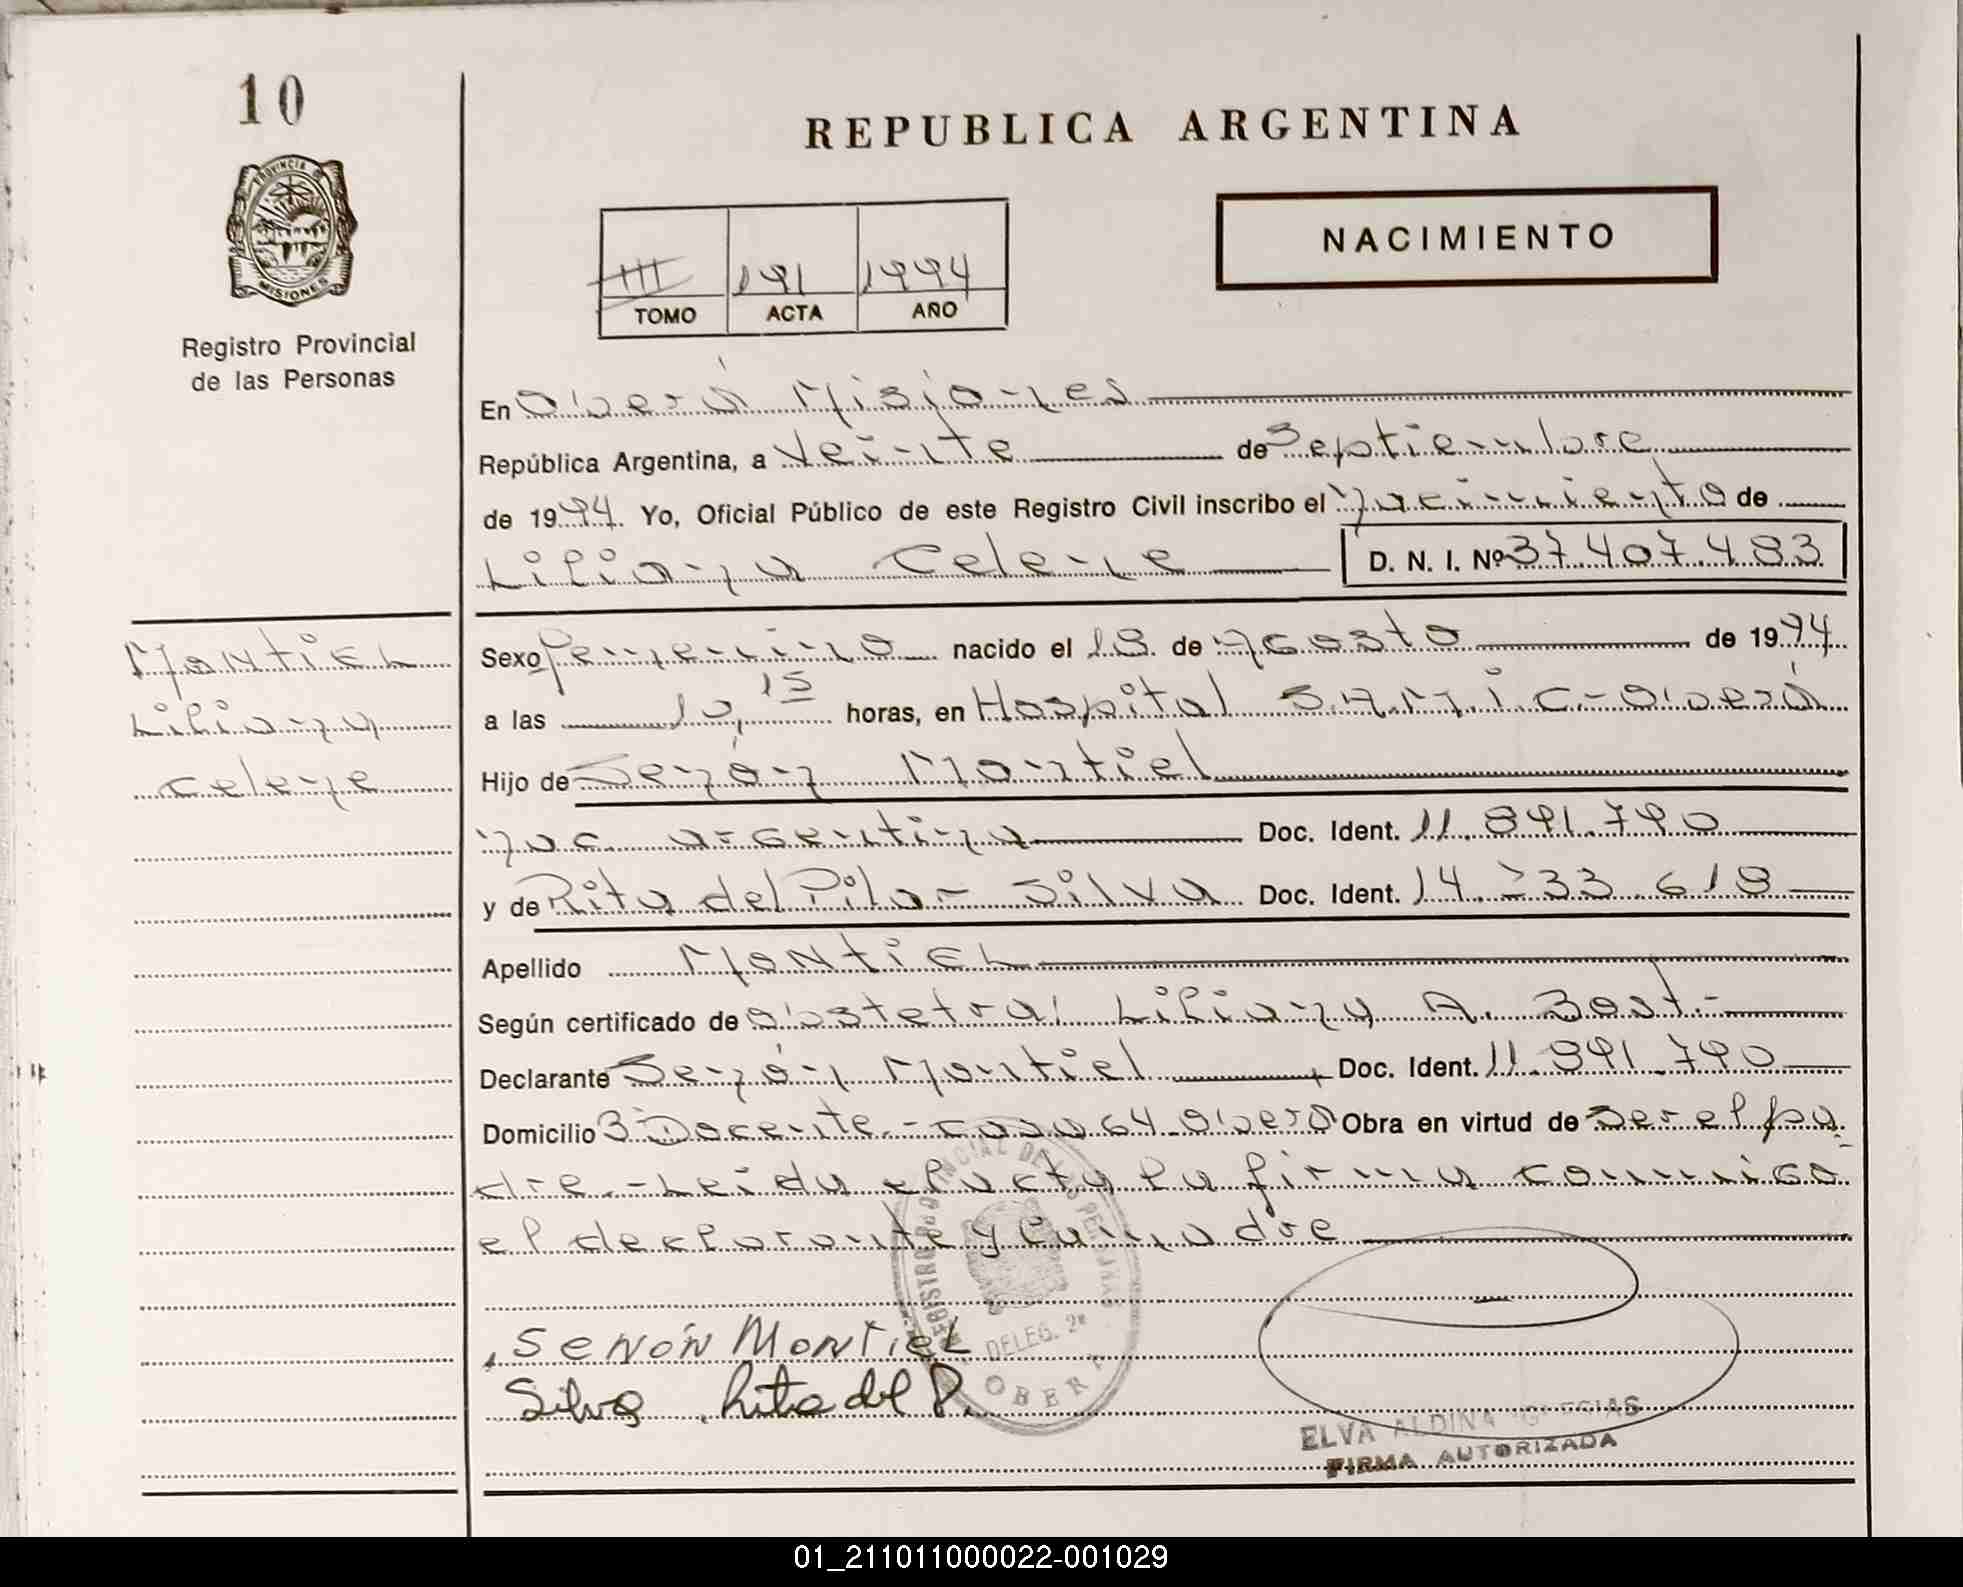 10
REPUBLICA ARGENTINA
PROVINCIA DE
MISIONES
NACIMIENTO
III 191 1994
TOMO ACTA AÑO
Registro Provincial
de las Personas
En Oberá Misiones
República Argentina, a Veinte de Septiembre
de 1994. Yo, Oficial Público de este Registro Civil inscribo el nacimiento de
Liliana Celene D. N. I. Nº 37.407.483
Montiel
Liliana
Celene
Sexo Femenino nacido el 18 de Agosto de 1994
a las 10,15 horas, en Hospital S.A.M.I.C-Oberá
Hijo de Senón Montiel
nac. argentina Doc. Ident. 11.891.790
y de Rita del Pilar Silva Doc. Ident. 14.233.618
Apellido Montiel
Según certificado de Obstetra: Liliana A. Bost.-
Declarante Senón Montiel Doc. Ident. 11.891.790
Domicilio Bº Docente - casa 64 Oberá Obra en virtud de ser el pa
dre.- Leida el acta la firma conmigo
el declarante y la madre
REGISTRO PROVINCIAL DE LAS PERSONAS
DELEG. 2ª
OBERA
Senón Montiel
Silva Rita del P.
ELVA ALDINA IGLESIAS
FIRMA AUTORIZADA
01_211011000022-001029